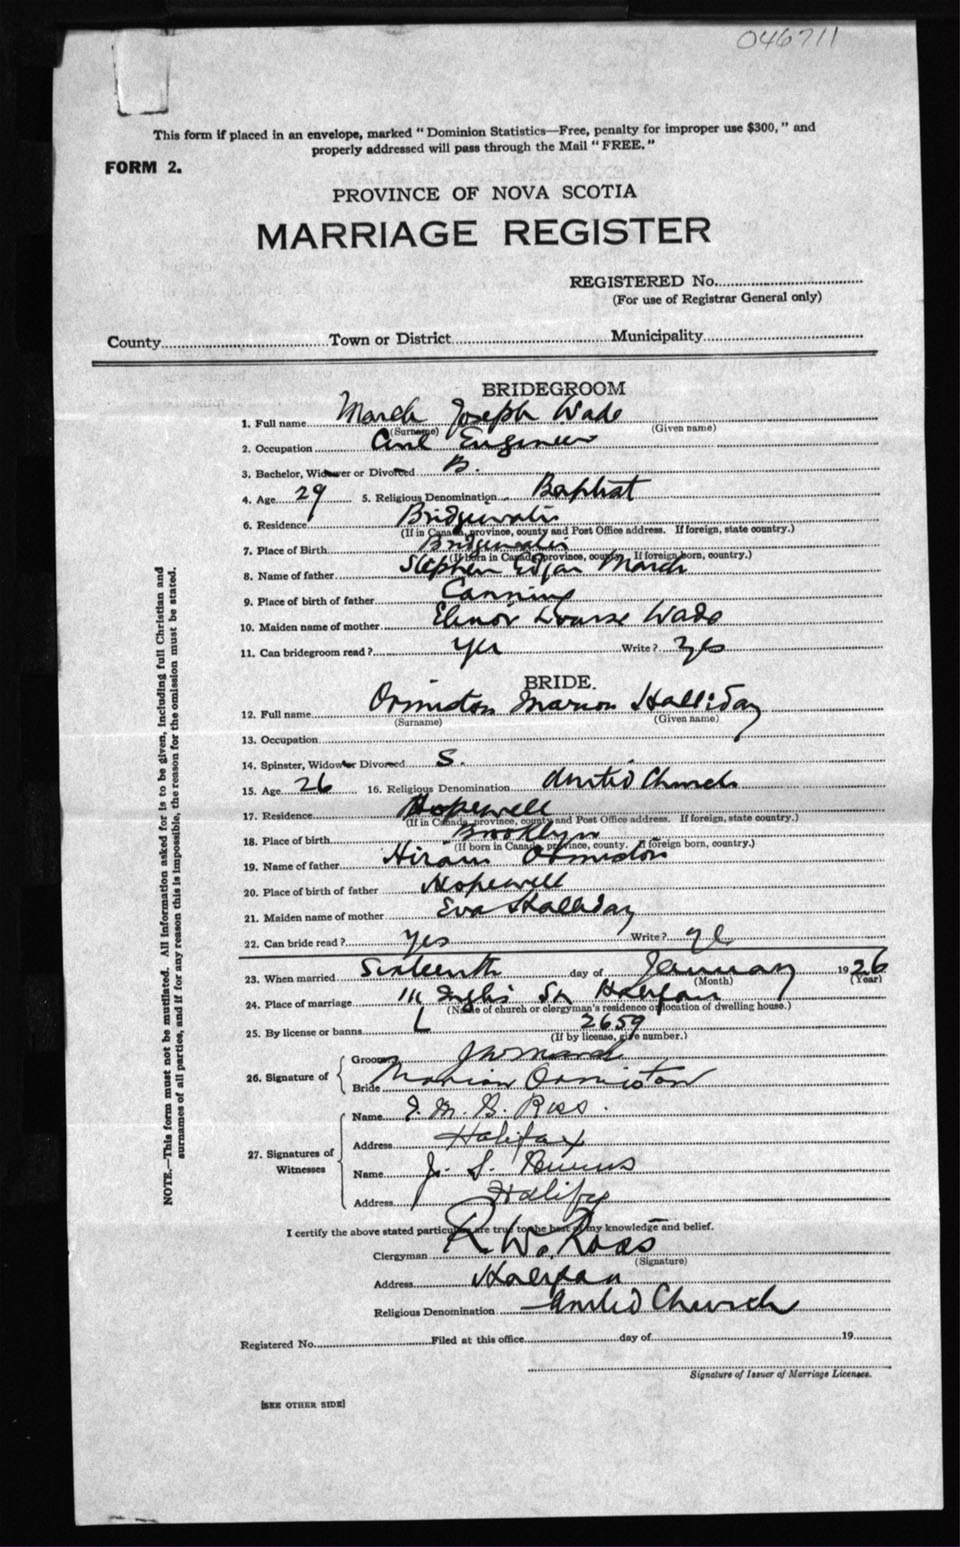 046711
This form if placed in an envelope, marked "Dominion Statistics—Free, penalty for improper use $300," and
properly addressed will pass through the Mail "FREE."
FORM 2.
PROVINCE OF NOVA SCOTIA
MARRIAGE REGISTER
REGISTERED No.
(For use of Registrar General only)
County Town or District Municipality
BRIDEGROOM
1. Full name March Joseph Wade
(Surname) (Given name)
2. Occupation Civil Engineer
3. Bachelor, Widower or Divorced B.
4. Age 29 5. Religious Denomination Baptist
6. Residence Bridgewater
(If in Canada, province, county and Post Office address. If foreign, state country.)
7. Place of Birth Bridgewater
(If born in Canada, province, county. If foreign born, country.)
8. Name of father Stephen Edgar March
9. Place of birth of father Canning
10. Maiden name of mother Elinor Louise Wade
11. Can bridegroom read? Yes Write? Yes
BRIDE.
12. Full name Ormiston Marion Halliday
(Surname) (Given name)
13. Occupation
14. Spinster, Widow or Divorced S.
15. Age 26 16. Religious Denomination United Church
17. Residence Hopewell
(If in Canada, province, county and Post Office address. If foreign, state country.)
18. Place of birth Brooklyn
(If born in Canada, province, county. If foreign born, country.)
19. Name of father Hiram Ormiston
20. Place of birth of father Hopewell
21. Maiden name of mother Eva Halliday
22. Can bride read? Yes Write?
23. When married Sixteenth day of January 1926
(Month) (Year)
24. Place of marriage Inglis St Halifax
(Name of church or clergyman's residence or location of dwelling house.)
25. By license or banns L 2659
(If by license, give number.)
26. Signature of
Groom J W March
Bride Marion Ormiston
27. Signatures of Witnesses
Name Ross.
Address Halifax
Name J. S.
Address Halifax
I certify the above stated particulars are true to the best of my knowledge and belief.
Clergyman R. W. Ross
(Signature)
Address Halifax
Religious Denomination United Church
Registered No. Filed at this office day of 19
Signature of Issuer of Marriage Licenses.
[SEE OTHER SIDE]
NOTE.—This form must not be mutilated. All information asked for is to be given, including full Christian and
surnames of all parties, and if for any reason this is impossible, the reason for the omission must be stated.